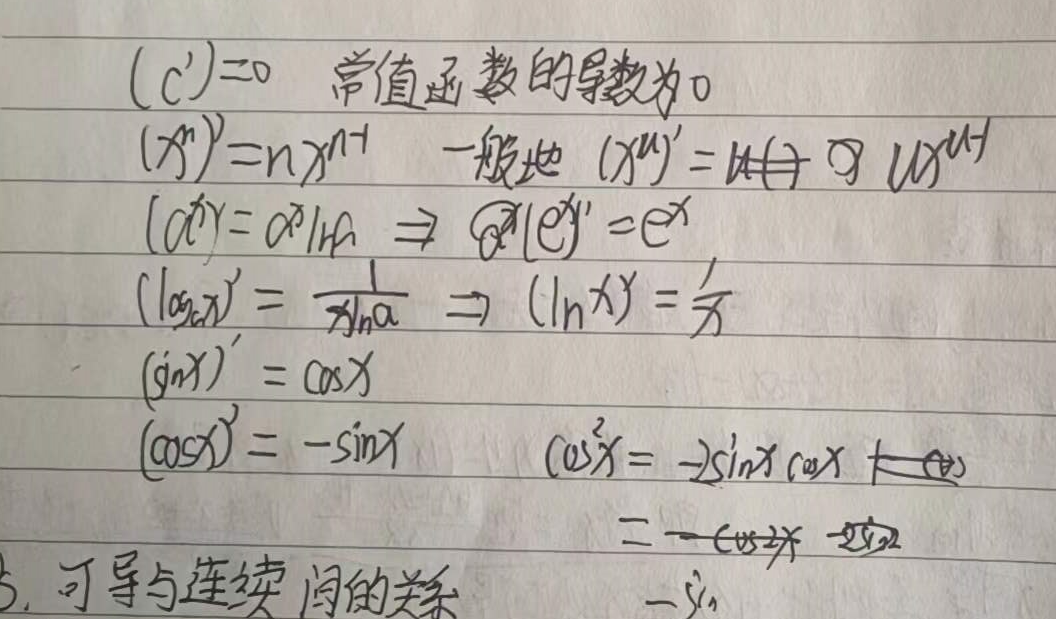 (c')=0 常值函数的导数为0
(xⁿ)'=nxⁿ⁻¹ 一般地 (x^u)'= ux^(u-1)
(aˣ)'=aˣlna ⇒ (eˣ)'=eˣ
(logₐx)' = 1/(xlna) ⇒ (lnx)' = 1/x
(sinx)' = cosx
(cosx)' = -sinx cos²x = -2sinx cosx
=
3. 可导与连续间的关系 -sin